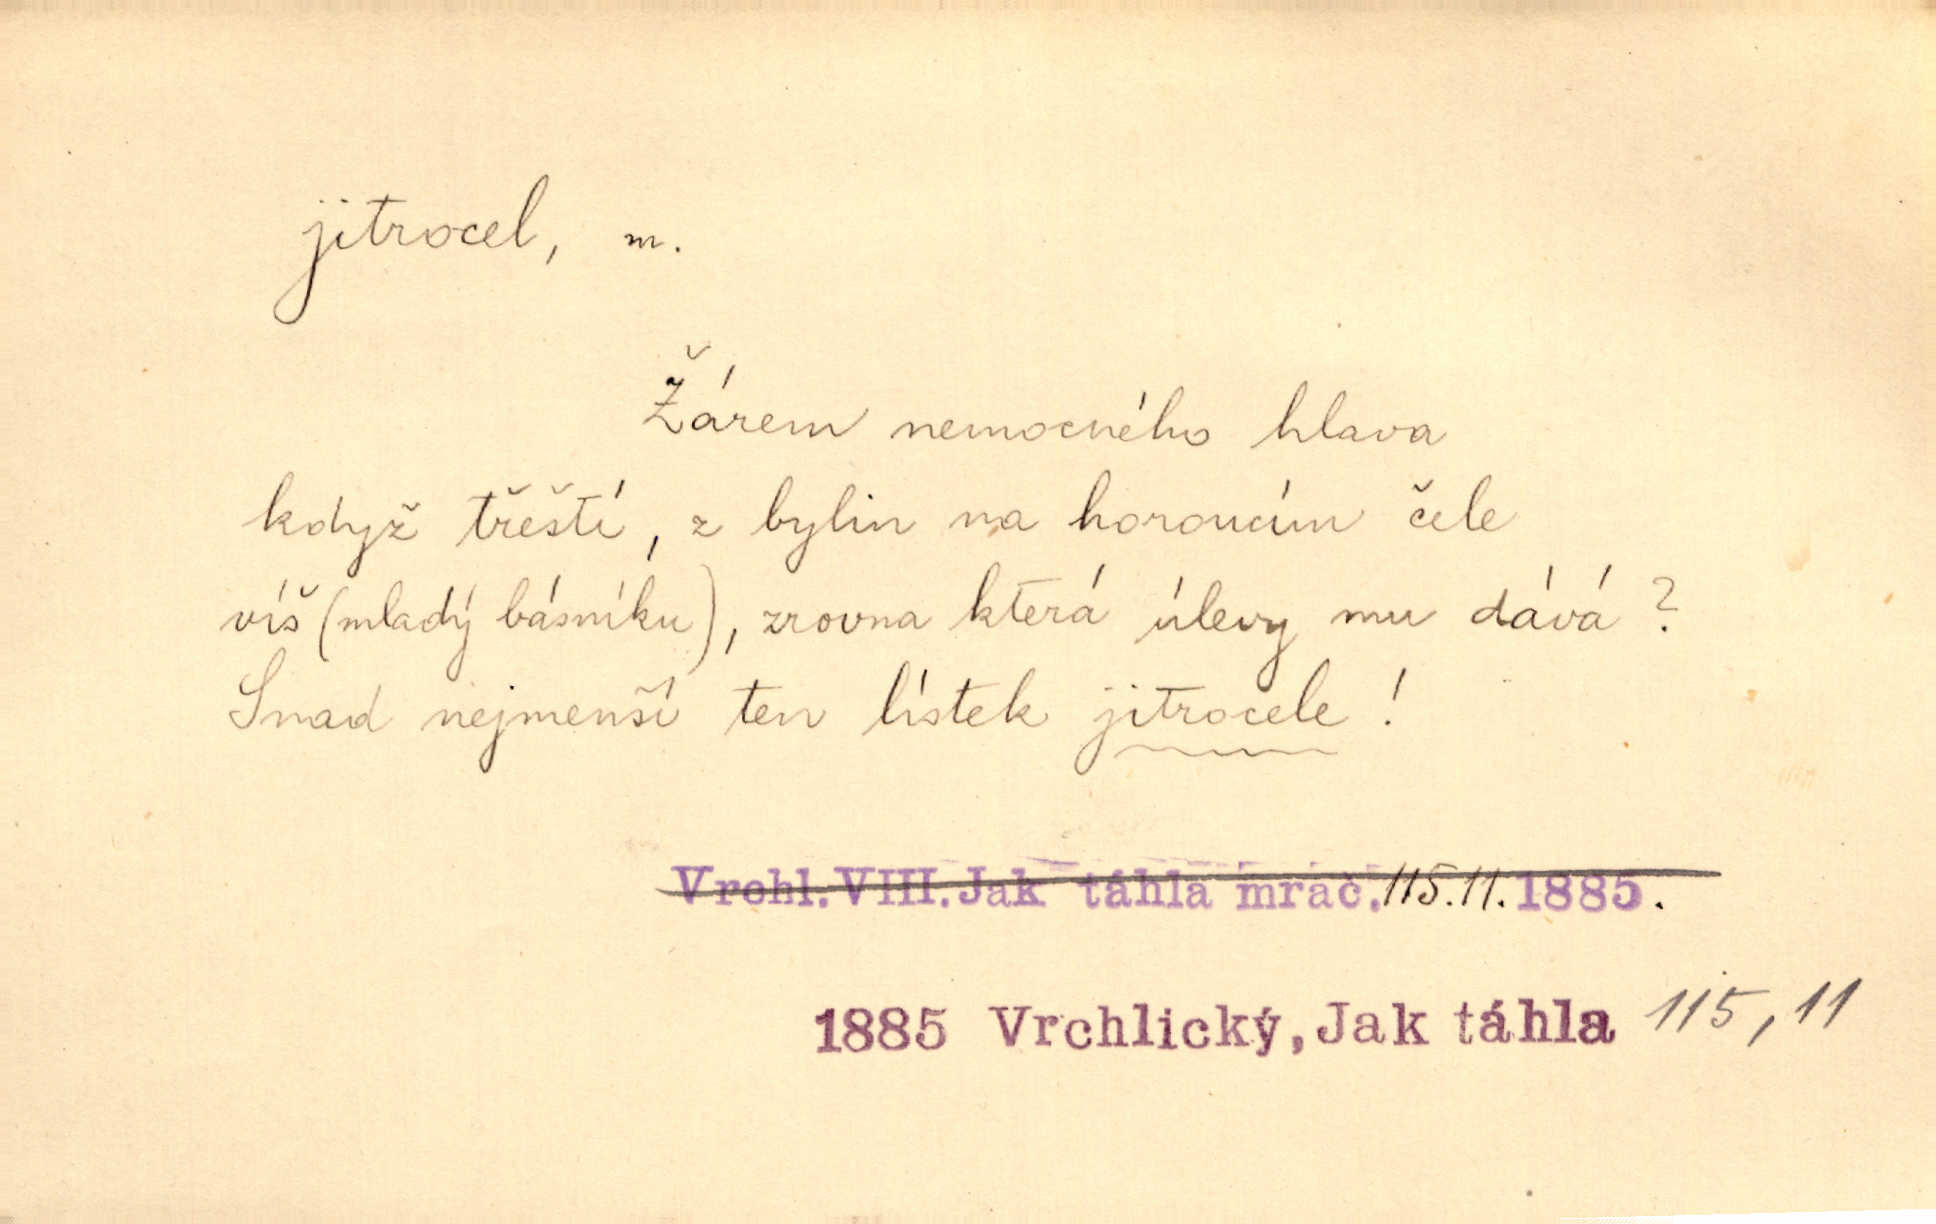 jitrocel, m.
Žárem nemocného hlava
když třeští, z bylin na horoucím čele
víš (mladý básníku), zrovna která úlevy mu dává?
Snad nejmenší ten lístek jitrocele!
Vrchl. VIII. Jak táhla mrač. 115.11. 1885.
1885 Vrchlický, Jak táhla 115, 11